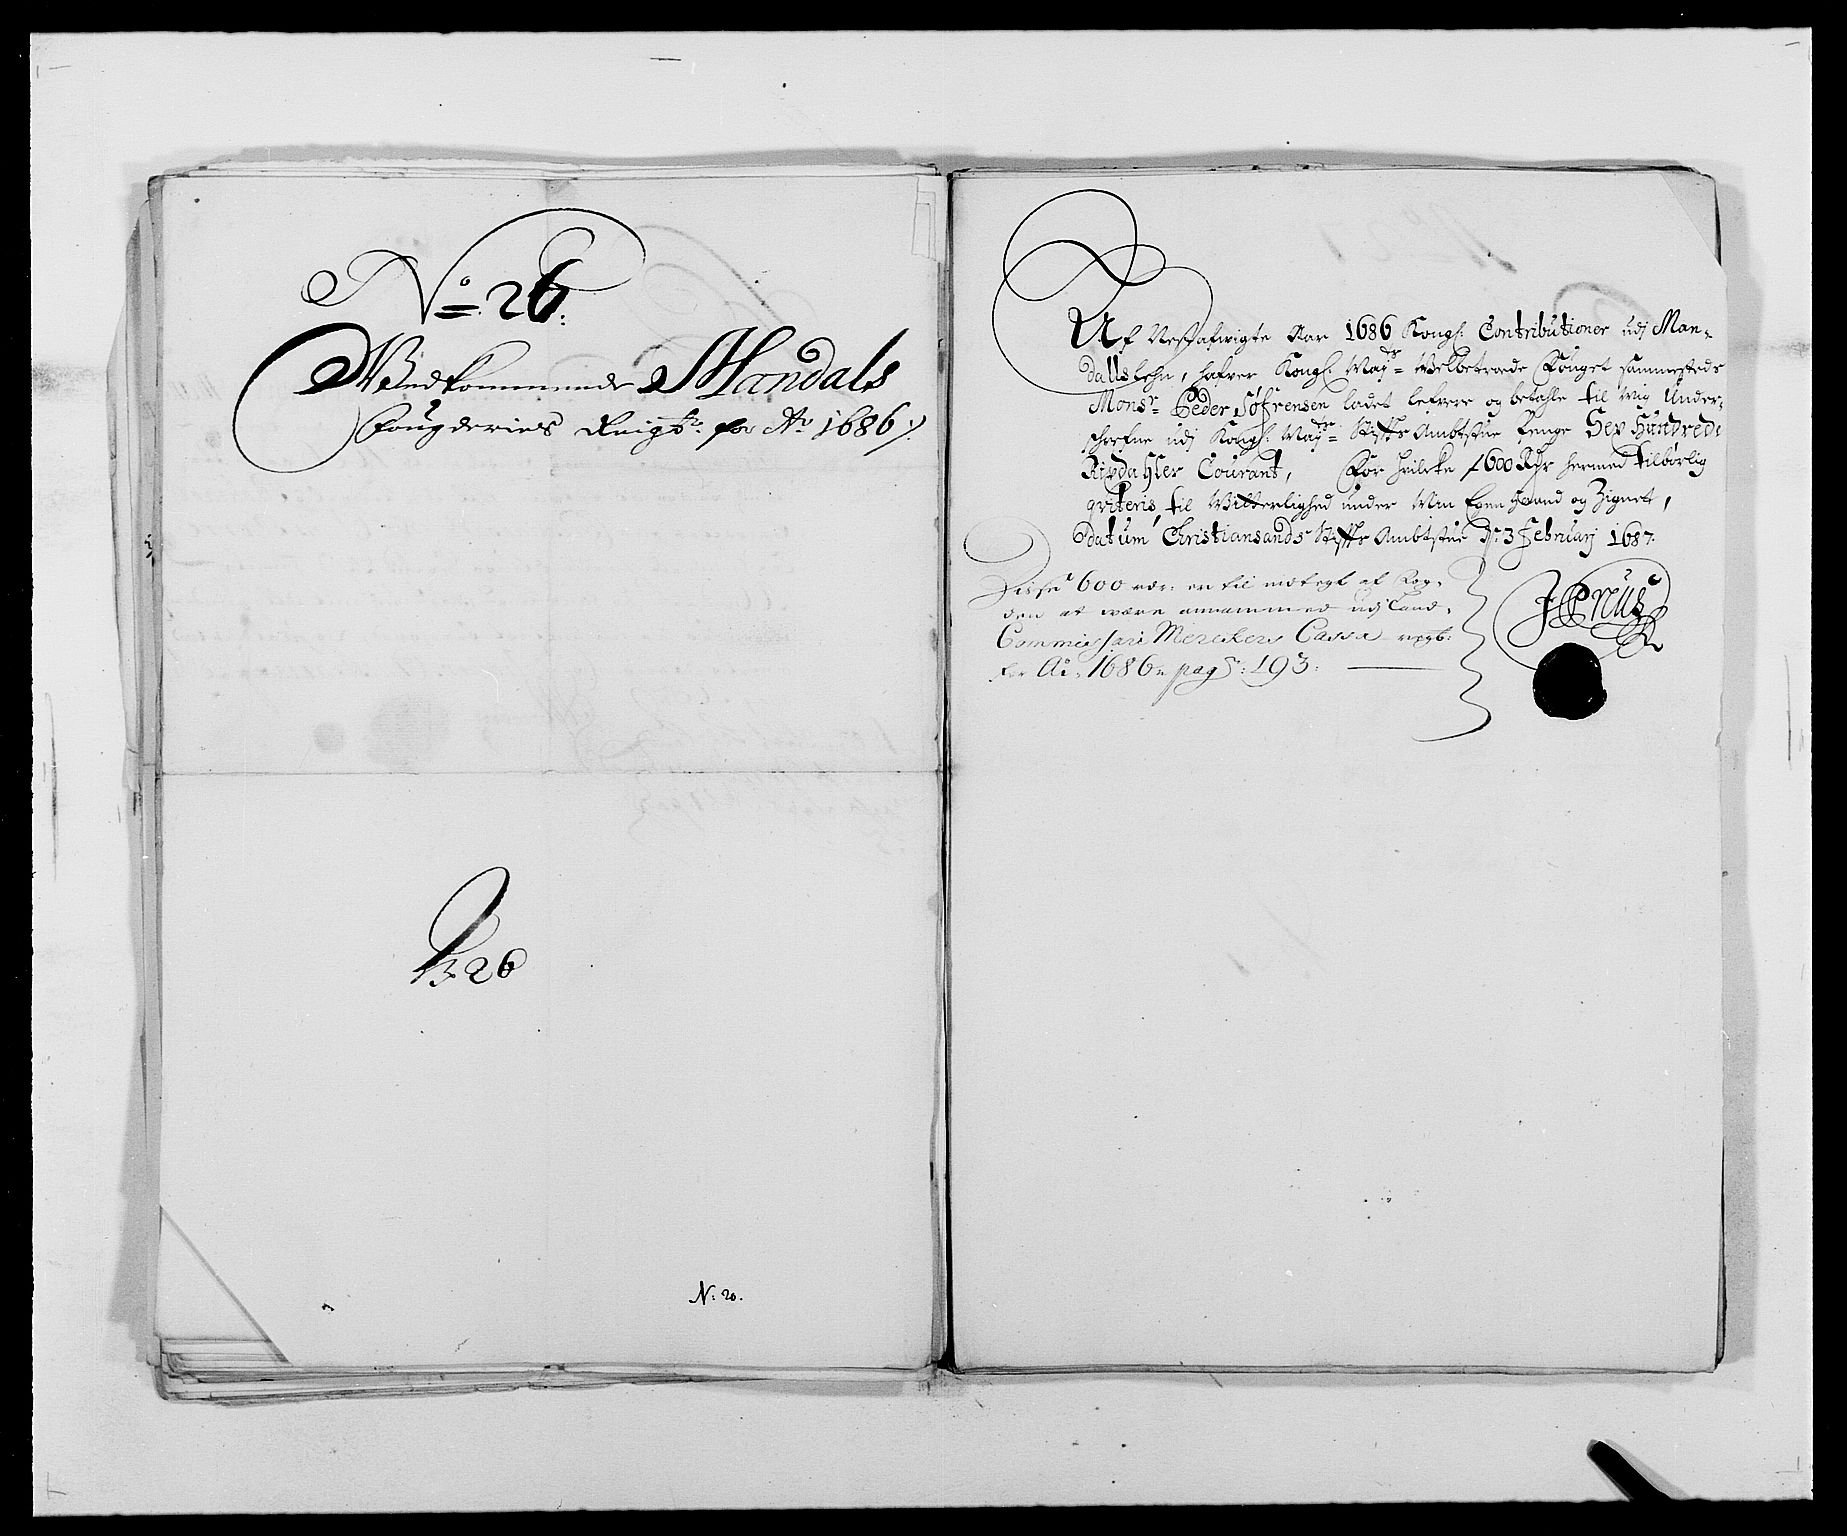 No 26:
Vedkommende Mandals
Fougderies Regnsk: for Ao 1686
26
N: 20.
Af Nestafvigte Aar 1686 Kongl: Contributioner udj Man-
dalls Lehn, hafver Kongl: Mayts Velbetroede Fouget sammesteds
Monsr Peder Søfrensen ladet lefvere og betahle til mig Under-
schrefne udj Kongl: Mayts Stiffts Ambtstue penge Sex Hundrede
Rixdahler Courant, For hvilcke 600 Rdr hermed tilbørlig
qviteris, til Vitterlighed under Min Egen Haand og Zignett,
Datum Christiansands Stiffts Ambtstue d: 3 Februarj 1687.
Disse 600 rdr: er til indtegt af Fog-
den at være annammed udj Land-
Commissari Merckers Cassa regsk:
for Ao 1686 pag: 193: